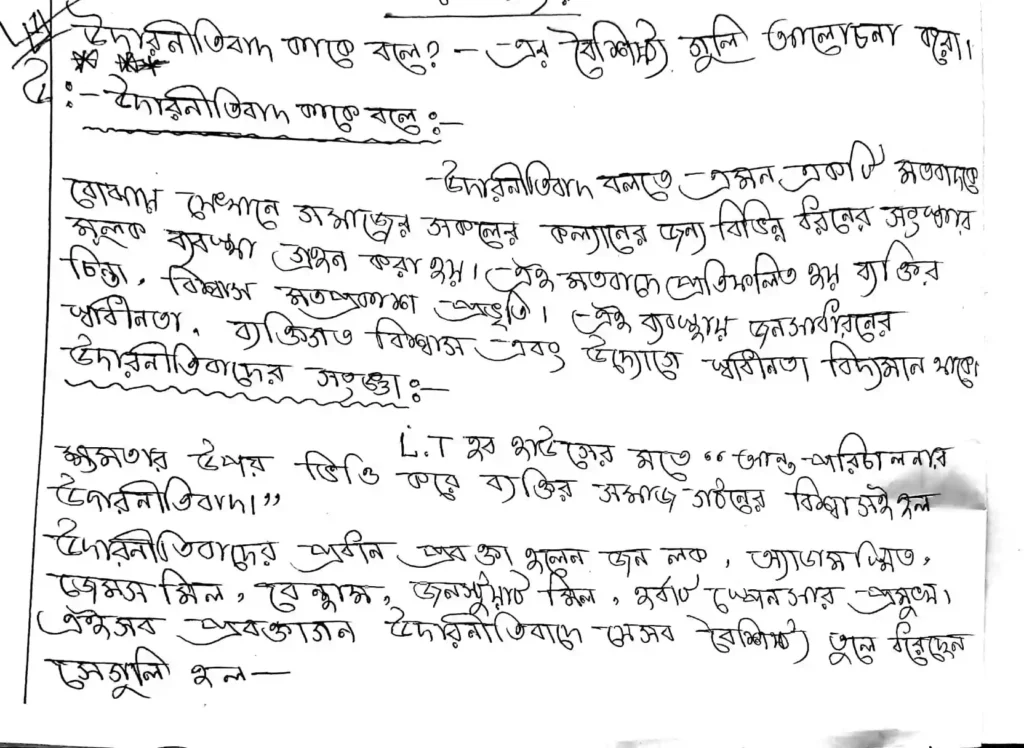 উদারনীতিবাদ কাকে বলে? এর বৈশিষ্ট্য গুলি আলোচনা করো।
ঃ- উদারনীতিবাদ কাকে বলে ঃ-
উদারনীতিবাদ বলতে এমন একটি মতবাদকে
বোঝায় যেখানে সমাজের সকলের কল্যানের জন্য বিভিন্ন ধরনের সংস্কার
মূলক ব্যবস্থা গ্রহন করা হয়। এই মতবাদে প্রতিফলিত হয় ব্যক্তির
চিন্তা, বিশ্বাস মতপ্রকাশ প্রভৃতি। এই ব্যবস্থায় জনসাধারনের
স্বাধীনতা, ব্যক্তিগত বিশ্বাস এবং উদ্যোগে স্বাধীনতা বিদ্যমান থাকে।
উদারনীতিবাদের সংজ্ঞা ঃ-
L.T হব হাউসের মতে “আত্ম পরিচালনার
ক্ষমতার উপর ভিত্তি করে ব্যক্তির সমাজ গঠনের বিশ্বাসই হল
উদারনীতিবাদ।”
উদারনীতিবাদের প্রধান প্রবক্তা হলেন জন লক, অ্যাডাম স্মিথ,
জেমস মিল, বেন্থাম, জন স্টুয়ার্ট মিল, হার্বার্ট স্পেনসার প্রমুখ।
এইসব প্রবক্তাগন উদারনীতিবাদে যেসব বৈশিষ্ট্য তুলে ধরেছেন
সেগুলি হল—